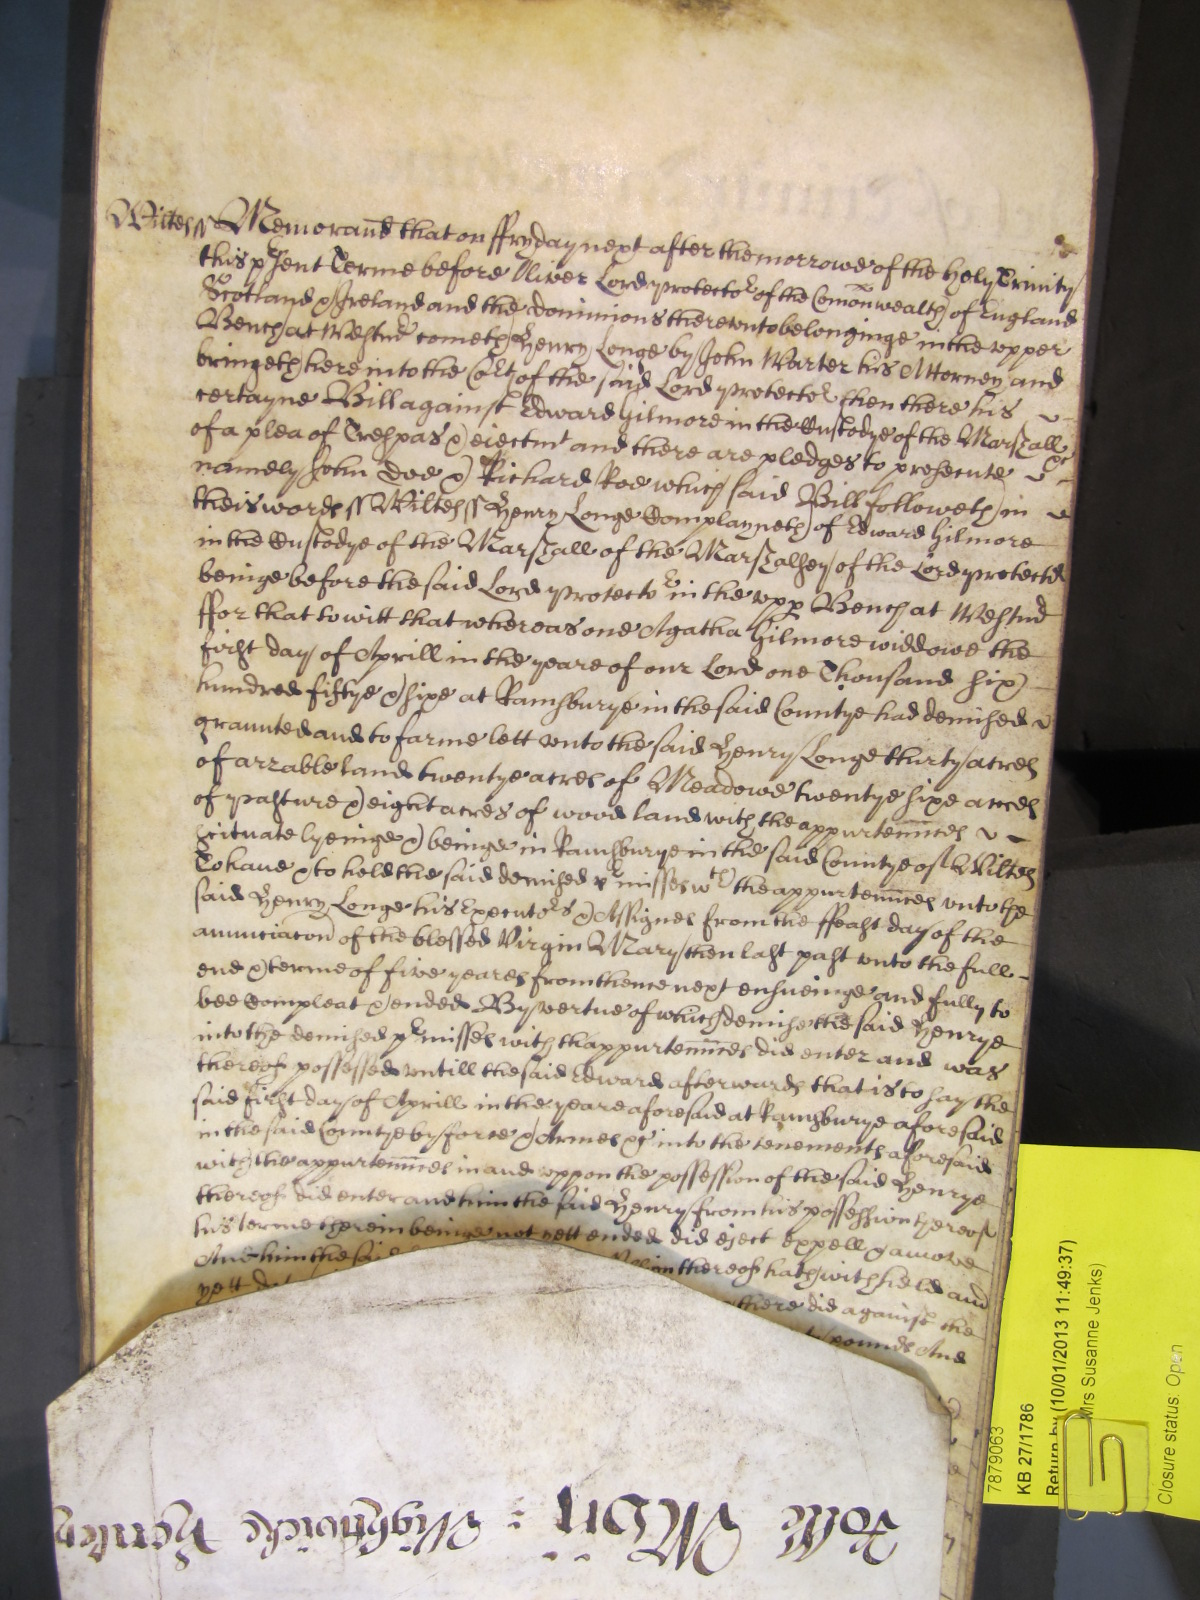 Wiltes ss Memorand that on ffryday next after the morrowe of the holy Trinity
this present Terme before Oliver Lord protector of the Comonwealth of England
Scotland & Ireland and the dominions thereunto belonginge in the upper
Bench at Westmr cometh Henry Longe by John Warter his Attorney and
bringeth here into the Court of the said Lord protector then there his
certayne Bill against Edward Gilmore in the Custodye of the Marshall &c
of a plea of Trespas & ejectmt and there are pledges to prosecute
namely John Doe & Richard Roe which said Bill followeth in
theis words ss Wiltes ss Henry Longe Complayneth of Edward Gilmore
in the Custodye of the Marshall of the Marshalsey of the Lord protector
beinge before the said Lord protector in the upp Bench at Westmr
ffor that to witt that whereas one Agatha Gilmore widdowe the
first day of Aprill in the yeare of our Lord one Thousand six
hundred fiftye & sixe at Ramsburye in the said Countye had demised
graunted and to farme lett unto the said Henry Longe thirty acres
of arrable land twentye acres of Meadowe twentye sixe acres
of pasture & eight acres of wood land with the appurtennces
scituate lyeinge & beinge in Ramsburye in the said Countye of Wiltes
To have & to hold the said demised pmisses wth the appurtennces unto the
said Henry Longe his Executors & Assignes from the ffeast day of the
anunciacon of the blessed Virgin Mary then last past unto the full
end & terme of five yeares from thence next ensueinge and fully to
bee Compleat & ended By vertue of which demise the said Henrye
into the demised pmisses with thappurtennces did enter and was
thereof possessed untill the said Edward afterwards that is to say the
said first day of Aprill in the yeare aforesaid at Ramsburye aforesaid
in the said Countye by force & Armes &c into the tenements aforesaid
with the appurtennces in and uppon the possession of the said Henrye
thereof did enter and him the said Henry from his possession thereof
his terme therein beinge not yett ended did eject expell & amove
And him the said thereof hath withheld and
yett there did against the
pounds And
7879063
KB 27/1786
Return by (10/01/2013 11:49:37)
Mrs Susanne Jenks)
Closure status: Open